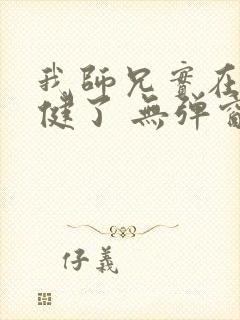 我師兄實在
健了 無弹窗
仔義